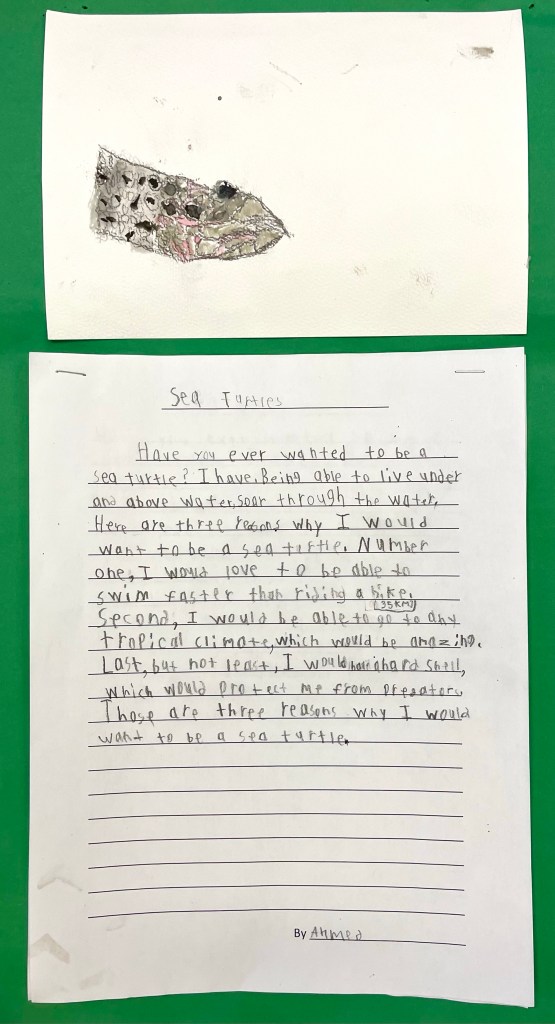 Sea Turtles
Have you ever wanted to be a
sea turtle? I have. Being able to live under
and above water, soar through the water,
Here are three reasons why I would
want to be a sea turtle. Number
one, I would love to be able to
swim faster than riding a bike.
(35KM)
Second, I would be able to go to any
tropical climate, which would be amazing.
Last, but not least, I would have a hard shell,
which would protect me from preators.
Those are three reasons why I would
want to be a sea turtle.
By Ahmed